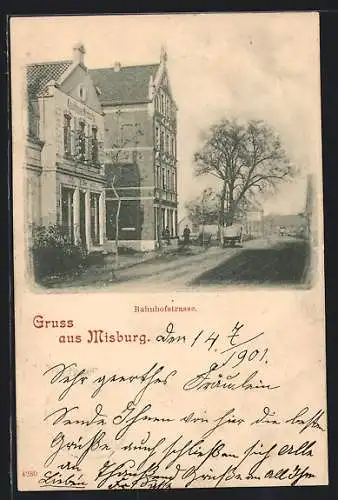 Bahnhofstrasse.
Gruss
aus Misburg.
den 14/7
1901.
Sehr geerthes Fräulein
Sende Ihnen von hier die besten
Grüße, auch schließen sich Alle
an
Grüße an all Ihre
Lieben
4280